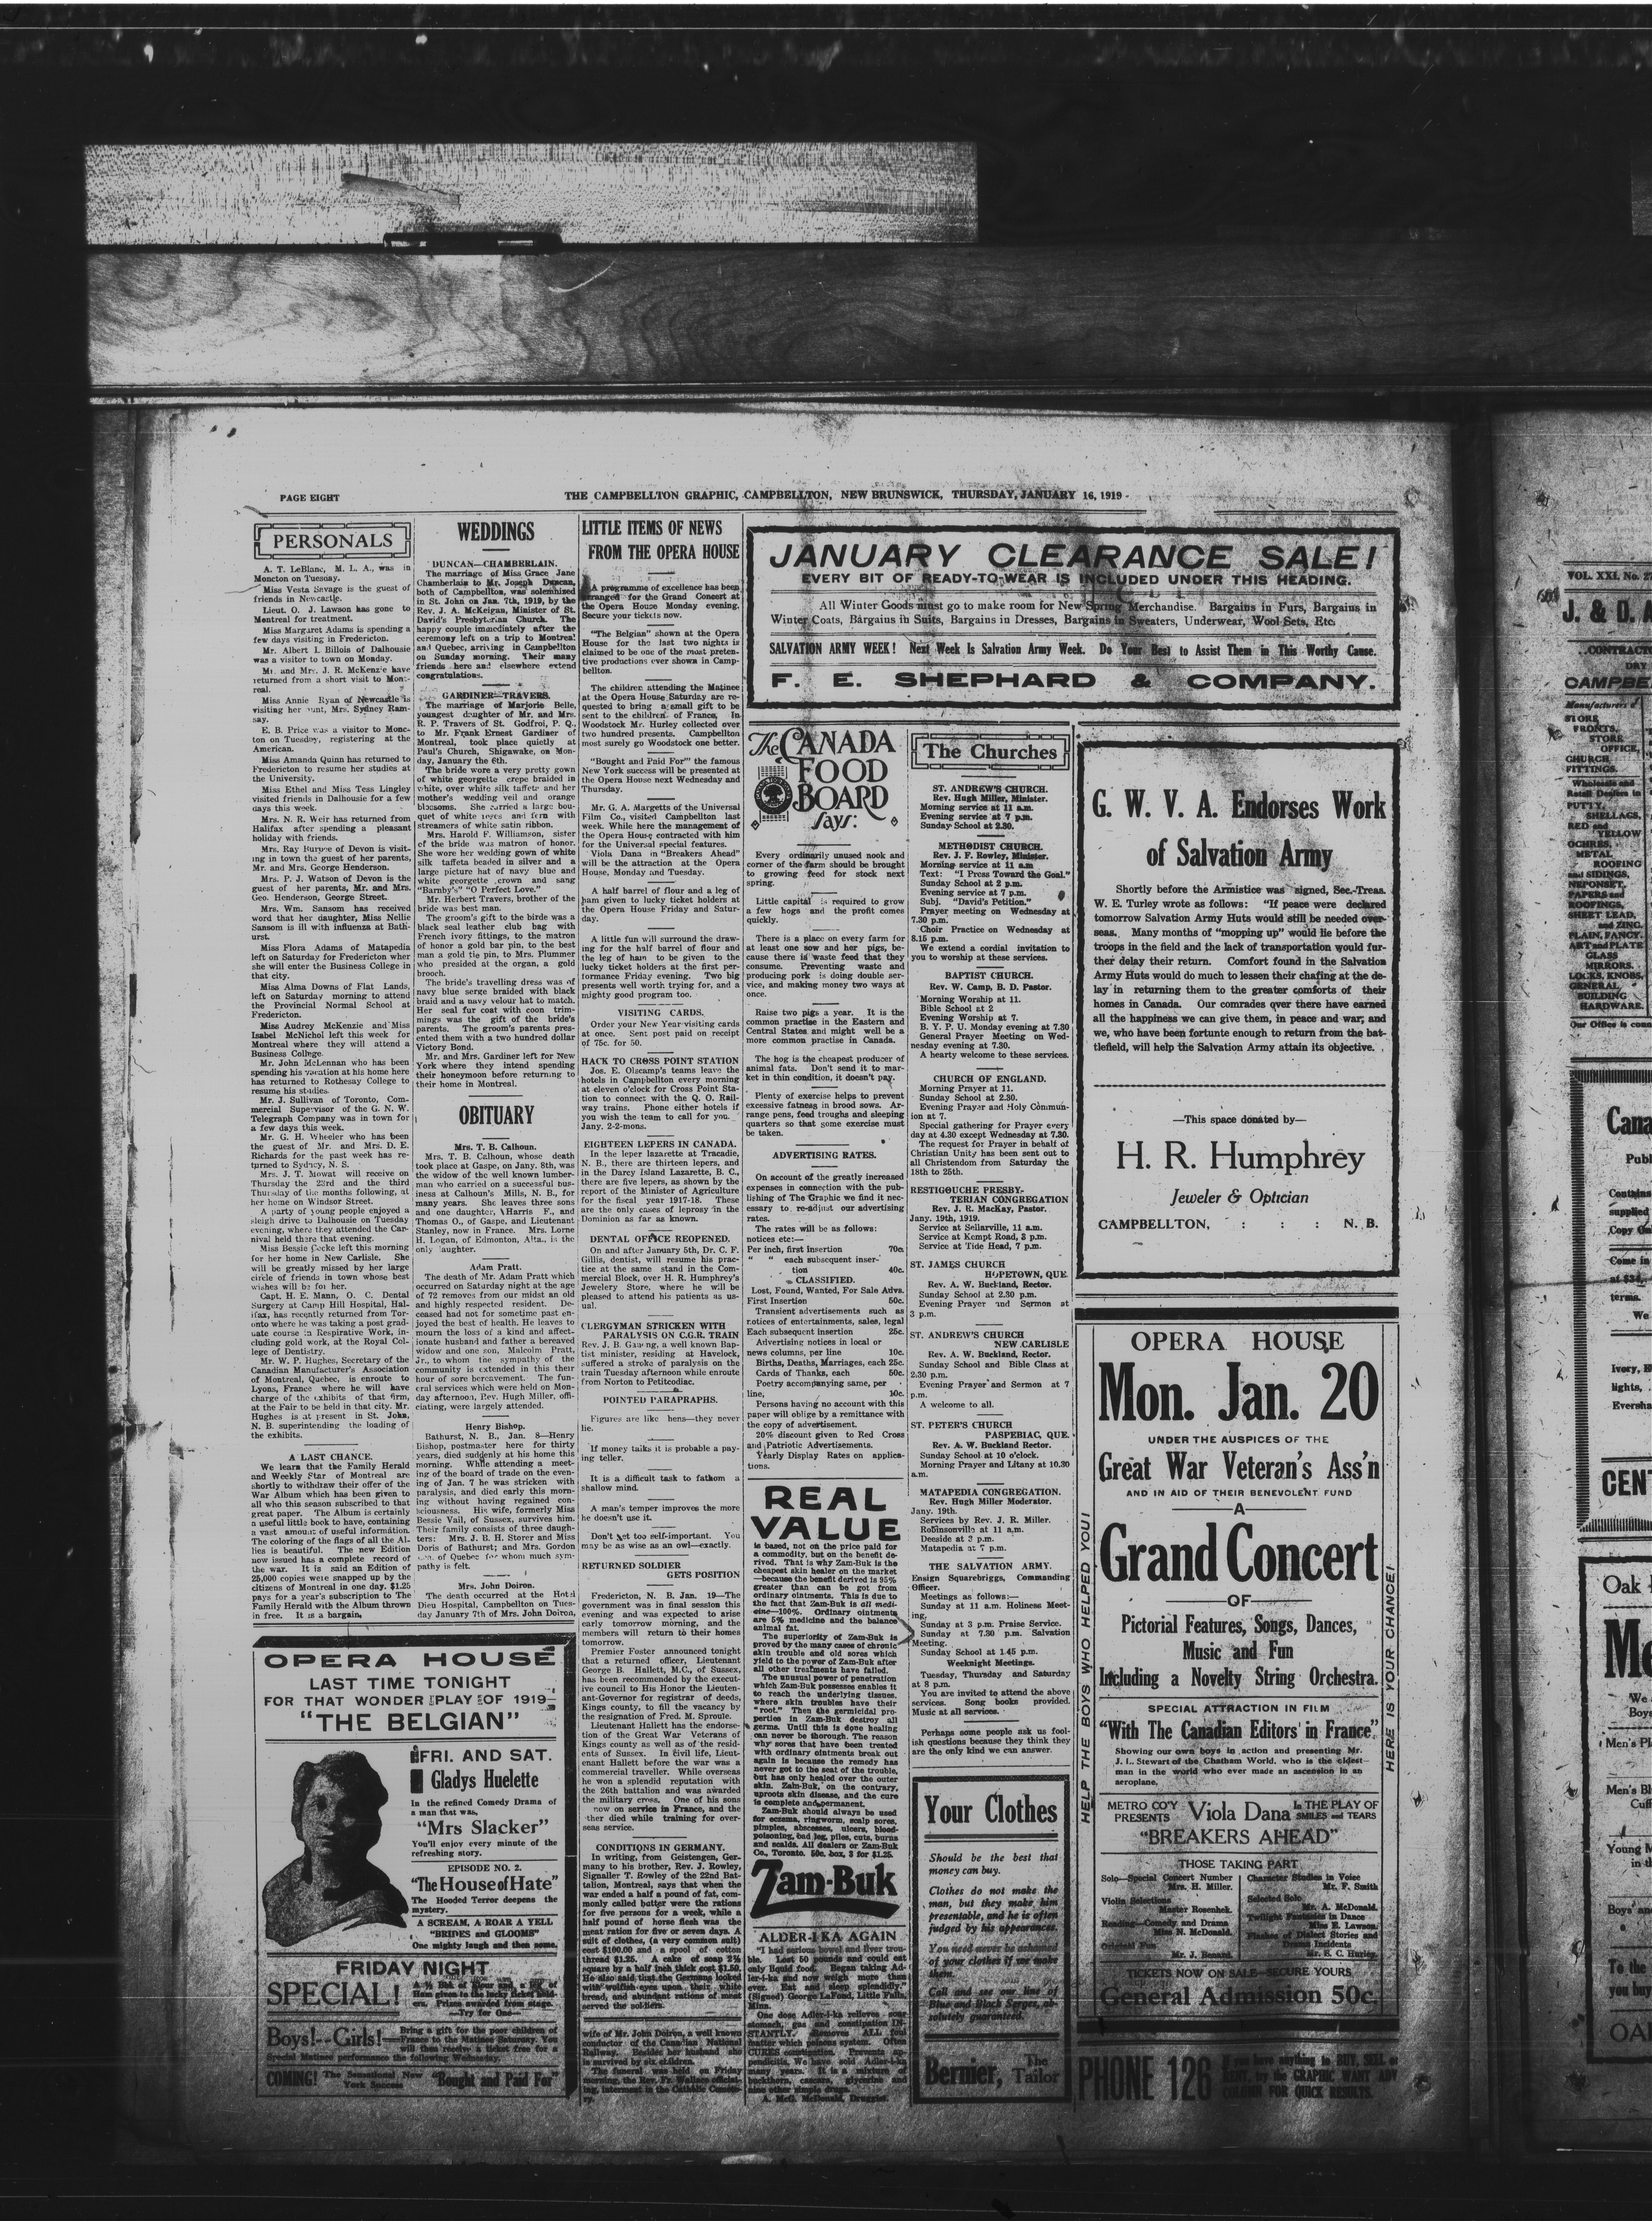 PAGE EIGHT
THE CAMPBELLTON GRAPHIC, CAMPBELLTON, NEW BRUNSWICK, THURSDAY, JANUARY 16, 1919
PERSONALS
A. T. LeBlanc, M. L. A., was in
Moncton on Tuesday.
Miss Vesta Savage is the guest of
friends in Newcastle.
Lieut. O. J. Lawson has gone to
Montreal for treatment.
Miss Margaret Adams is spending a
few days visiting in Fredericton.
Mr. Albert I. Billois of Dalhousie
was a visitor to town on Monday.
Mr. and Mrs. J. R. McKenzie have
returned from a short visit to Mont-
real.
Miss Annie Ryan of Newcastle is
visiting her aunt, Mrs. Sydney Ram-
say.
E. B. Price was a visitor to Monc-
ton on Tuesday, registering at the
American.
Miss Amanda Quinn has returned to
Fredericton to resume her studies at
the University.
Miss Ethel and Miss Tess Lingley
visited friends in Dalhousie for a few
days this week.
Mrs. N. R. Weir has returned from
Halifax after spending a pleasant
holiday with friends.
Mrs. Ray Burpee of Devon is visit-
ing in town the guest of her parents,
Mr. and Mrs. George Henderson.
Mrs. P. J. Watson of Devon is the
guest of her parents, Mr. and Mrs.
Geo. Henderson, George Street.
Mrs. Wm. Sansom has received
word that her daughter, Miss Nellie
Sansom is ill with influenza at Bath-
urst.
Miss Flora Adams of Matapedia
left on Saturday for Fredericton wher
she will enter the Business College in
that city.
Miss Alma Downs of Flat Lands,
left on Saturday morning to attend
the Provincial Normal School at
Fredericton.
Miss Audrey McKenzie and Miss
Isabel McNichol left this week for
Montreal where they will attend a
Business College.
Mr. John McLennan who has been
spending his vacation at his home here
has returned to Rothesay College to
resume his studies.
Mr. J. Sullivan of Toronto, Com-
mercial Supervisor of the G. N. W.
Telegraph Company was in town for
a few days this week.
Mr. G. H. Wheeler who has been
the guest of Mr. and Mrs. D. E.
Richards for the past week has re-
turned to Sydney, N. S.
Mrs. J. T. Mowat will receive on
Thursday the 23rd and the third
Thursday of the months following, at
her home on Windsor Street.
A party of young people enjoyed a
sleigh drive to Dalhousie on Tuesday
evening, where they attended the Car-
nival held there that evening.
Miss Bessie Cocke left this morning
for her home in New Carlisle. She
will be greatly missed by her large
circle of friends in town whose best
wishes will be for her.
Capt. H. E. Mann, O. C. Dental
Surgery at Camp Hill Hospital, Hal-
ifax, has recently returned from Tor-
onto where he was taking a post grad-
uate course in Respirative Work, in-
cluding gold work, at the Royal Col-
lege of Dentistry.
Mr. W. P. Hughes, Secretary of the
Canadian Manufacturer's Association
of Montreal, Quebec, is enroute to
Lyons, France where he will have
charge of the exhibits of that firm,
at the Fair to be held in that city. Mr.
Hughes is at present in St. John,
N. B. superintending the loading of
the exhibits.
A LAST CHANCE.
We learn that the Family Herald
and Weekly Star of Montreal are
shortly to withdraw their offer of the
War Album which has been given to
all who this season subscribed to that
great paper. The Album is certainly
a useful little book to have, containing
a vast amount of useful information.
The coloring of the flags of all the Al-
lies is beautiful. The new Edition
now issued has a complete record of
the war. It is said an Edition of
25,000 copies were snapped up by the
citizens of Montreal in one day. $1.25
pays for a year's subscription to The
Family Herald with the Album thrown
in free. It is a bargain,
WEDDINGS
DUNCAN—CHAMBERLAIN.
The marriage of Miss Grace Jane
Chamberlain to Mr. Joseph Duncan,
both of Campbellton, was solemnized
in St. John on Jan. 7th, 1919, by the
Rev. J. A. McKeigan, Minister of St.
David's Presbyterian Church. The
happy couple immediately after the
ceremony left on a trip to Montreal
and Quebec, arriving in Campbellton
on Sunday morning. Their many
friends here and elsewhere extend
congratulations.
GARDINER—TRAVERS.
The marriage of Marjorie Belle,
youngest daughter of Mr. and Mrs.
R. P. Travers of St. Godfroi, P. Q.,
to Mr. Frank Ernest Gardiner of
Montreal, took place quietly at
Paul's Church, Shigawake, on Mon-
day, January the 6th.
The bride wore a very pretty gown
of white georgette crepe braided in
white, over white silk taffeta and her
mother's wedding veil and orange
blossoms. She carried a large bou-
quet of white roses and fern with
streamers of white satin ribbon.
Mrs. Harold F. Williamson, sister
of the bride was matron of honor.
She wore her wedding gown of white
silk taffeta beaded in silver and a
large picture hat of navy blue and
white georgette crown and sang
"Barnby's" "O Perfect Love."
Mr. Herbert Travers, brother of the
bride was best man.
The groom's gift to the bride was a
black seal leather club bag with
French ivory fittings, to the matron
of honor a gold bar pin, to the best
man a gold tie pin, to Mrs. Plummer
who presided at the organ, a gold
brooch.
The bride's travelling dress was of
navy blue serge braided with black
braid and a navy velour hat to match.
Her seal fur coat with coon trim-
mings was the gift of the bride's
parents. The groom's parents pres-
ented them with a two hundred dollar
Victory Bond.
Mr. and Mrs. Gardiner left for New
York where they intend spending
their honeymoon before returning to
their home in Montreal.
OBITUARY
Mrs. T. B. Calhoun.
Mrs. T. B. Calhoun, whose death
took place at Gaspe, on Jany. 8th, was
the widow of the well known lumber-
man who carried on a successful bus-
iness at Calhoun's Mills, N. B., for
many years. She leaves three sons
and one daughter, Harris F., and
Thomas O., of Gaspe, and Lieutenant
Stanley, now in France. Mrs. Lorne
H. Logan, of Edmonton, Alta., is the
only daughter.
Adam Pratt.
The death of Mr. Adam Pratt which
occurred on Saturday night at the age
of 72 removes from our midst an old
and highly respected resident. De-
ceased had not for sometime past en-
joyed the best of health. He leaves to
mourn the loss of a kind and affect-
ionate husband and father a bereaved
widow and one son, Malcolm Pratt,
Jr., to whom the sympathy of the
community is extended in this their
hour of sore bereavement. The fun-
eral services which were held on Mon-
day afternoon, Rev. Hugh Miller, offi-
ciating, were largely attended.
Henry Bishop.
Bathurst, N. B., Jan. 8—Henry
Bishop, postmaster here for thirty
years, died suddenly at his home this
morning. While attending a meet-
ing of the board of trade on the even-
ing of Jan. 7 he was stricken with
paralysis, and died early this morn-
ing without having regained con-
sciousness. His wife, formerly Miss
Bessie Vail, of Sussex, survives him.
Their family consists of three daugh-
ters: Mrs. J. B. H. Storer and Miss
Doris of Bathurst; and Mrs. Gordon
of Quebec for whom much sym-
pathy is felt.
Mrs. John Doiron.
The death occurred at the Hotel
Dieu Hospital, Campbellton on Tues-
day January 7th of Mrs. John Doiron,
LITTLE ITEMS OF NEWS
FROM THE OPERA HOUSE
A programme of excellence has been
arranged for the Grand Concert at
the Opera House Monday evening.
Secure your tickets now.
"The Belgian" shown at the Opera
House for the last two nights is
claimed to be one of the most preten-
tive productions ever shown in Camp-
bellton.
The children attending the Matinee
at the Opera House Saturday are re-
quested to bring a small gift to be
sent to the children of France, In
Woodstock Mr. Hurley collected over
two hundred presents. Campbellton
most surely go Woodstock one better.
"Bought and Paid For" the famous
New York success will be presented at
the Opera House next Wednesday and
Thursday.
Mr. G. A. Margetts of the Universal
Film Co., visited Campbellton last
week. While here the management of
the Opera House contracted with him
for the Universal special features.
Viola Dana in "Breakers Ahead"
will be the attraction at the Opera
House, Monday and Tuesday.
A half barrel of flour and a leg of
ham given to lucky ticket holders at
the Opera House Friday and Satur-
day.
A little fun will surround the draw-
ing for the half barrel of flour and
the leg of ham to be given to the
lucky ticket holders at the first per-
formance Friday evening. Two big
presents well worth trying for, and a
mighty good program too.
VISITING CARDS.
Order your New Year visiting cards
at once. Sent post paid on receipt
of 75c. for 50.
HACK TO CROSS POINT STATION
Jos. E. Olscamp's teams leave the
hotels in Campbellton every morning
at eleven o'clock for Cross Point Sta-
tion to connect with the Q. O. Rail-
way trains. Phone either hotels if
you wish the team to call for you.
Jany. 2-2-mos.
EIGHTEEN LEPERS IN CANADA.
In the leper lazarette at Tracadie,
N. B., there are thirteen lepers, and
in the Darcy Island Lazarette, B. C.,
there are five lepers, as shown by the
report of the Minister of Agriculture
for the fiscal year 1917-18. These
are the only cases of leprosy in the
Dominion as far as known.
DENTAL OFFICE REOPENED.
On and after January 5th, Dr. C. F.
Gillis, dentist, will resume his prac-
tice at the same stand in the Com-
mercial Block, over H. R. Humphrey's
Jewelery Store, where he will be
pleased to attend his patients as us-
ual.
CLERGYMAN STRICKEN WITH
PARALYSIS ON C.G.R. TRAIN
Rev. J. B. Ganong, a well known Bap-
tist minister, residing at Havelock,
suffered a stroke of paralysis on the
train Tuesday afternoon while enroute
from Norton to Petitcodiac.
POINTED PARAPRAPHS.
Figures are like hens—they never
lie.
If money talks it is probable a pay-
ing teller.
It is a difficult task to fathom a
shallow mind.
A man's temper improves the more
he doesn't use it.
Don't get too self-important. You
may be as wise as an owl—exactly.
RETURNED SOLDIER
GETS POSITION
Fredericton, N. B. Jan. 19—The
government was in final session this
evening and was expected to arise
early tomorrow morning, and the
members will return to their homes
tomorrow.
Premier Foster announced tonight
that a returned officer, Lieutenant
George B. Hallett, M.C., of Sussex,
has been recommended by the execut-
ive council to His Honor the Lieuten-
ant-Governor for registrar of deeds,
Kings county, to fill the vacancy by
the resignation of Fred. M. Sproule.
Lieutenant Hallett has the endorse-
tion of the Great War Veterans of
Kings county as well as of the resid-
ents of Sussex. In civil life, Lieut-
enant Hallett before the war was a
commercial traveller. While overseas
he won a splendid reputation with
the 26th battalion and was awarded
the military cross. One of his sons
now on service in France, and the
other died while training for over-
seas service.
CONDITIONS IN GERMANY.
In writing, from Geistengen, Ger-
many to his brother, Rev. J. Rowley,
Signaller T. Rowley of the 22nd Bat-
talion, Montreal, says that when the
war ended a half a pound of fat, com-
monly called butter were the rations
for five persons for a week, while a
half pound of horse flesh was the
meat ration for five or seven days. A
suit of clothes, (a very common suit)
cost $100.00 and a spool of cotton
thread $1.25. A cake of soap 2½
square by a half inch thick cost $1.50.
He also said that the Germans looked
with wolfish eyes upon their white
bread, and abundant rations of meat
served the soldiers.
wife of Mr. John Doiron, a well known
conductor of the Canadian National
Railway. Besides her husband she
is survived by six children.
The funeral was held on Friday
morning, the Rev. Fr. Wallace officiat-
ing, interment in the Catholic Cemete-
ry.
JANUARY CLEARANCE SALE!
EVERY BIT OF READY-TO-WEAR IS INCLUDED UNDER THIS HEADING.
All Winter Goods must go to make room for New Spring Merchandise. Bargains in Furs, Bargains in
Winter Coats, Bargains in Suits, Bargains in Dresses, Bargains in Sweaters, Underwear, Wool Sets, Etc.
SALVATION ARMY WEEK! Next Week Is Salvation Army Week. Do Your Best to Assist Them in This Worthy Cause.
F. E. SHEPHARD & COMPANY.
The CANADA
FOOD
BOARD
Says:
Every ordinarily unused nook and
corner of the farm should be brought
to growing feed for stock next
spring.
Little capital is required to grow
a few hogs and the profit comes
quickly.
There is a place on every farm for
at least one sow and her pigs, be-
cause there is waste feed that they
consume. Preventing waste and
producing pork is doing double ser-
vice, and making money two ways at
once.
Raise two pigs a year. It is the
common practise in the Eastern and
Central States and might well be a
more common practise in Canada.
The hog is the cheapest producer of
animal fats. Don't send it to mar-
ket in thin condition, it doesn't pay.
Plenty of exercise helps to prevent
excessive fatness in brood sows. Ar-
range pens, feed troughs and sleeping
quarters so that some exercise must
be taken.
ADVERTISING RATES.
On account of the greatly increased
expenses in connection with the pub-
lishing of The Graphic we find it nec-
essary to re-adjust our advertising
rates.
The rates will be as follows:
notices etc:—
Per inch, first insertion 70c.
" " each subsequent inser-
tion 40c.
CLASSIFIED.
Lost, Found, Wanted, For Sale Advs.
First Insertion 50c.
Transient advertisements such as
notices of entertainments, sales, legal
Each subsequent insertion 25c.
Advertising notices in local or
news columns, per line 10c.
Births, Deaths, Marriages, each 25c.
Cards of Thanks, each 50c.
Poetry accompanying same, per
line, 10c.
Persons having no account with this
paper will oblige by a remittance with
the copy of advertisement.
20% discount given to Red Cross
and Patriotic Advertisements.
Yearly Display Rates on applica-
tions.
REAL
VALUE
is based, not on the price paid for
a commodity, but on the benefit de-
rived. That is why Zam-Buk is the
cheapest skin healer on the market
—because the benefit derived is 95%
greater than can be got from
ordinary ointments. This is due to
the fact that Zam-Buk is all medi-
cine—100%. Ordinary ointments
are 5% medicine and the balance
animal fat.
The superiority of Zam-Buk is
proved by the many cases of chronic
skin trouble and old sores which
yield to the power of Zam-Buk after
all other treatments have failed.
The unusual power of penetration
which Zam-Buk possesses enables it
to reach the underlying tissues,
where skin troubles have their
"root." Then the germicidal pro-
perties in Zam-Buk destroy all
germs. Until this is done healing
can never be thorough. The reason
why sores that have been treated
with ordinary ointments break out
again is because the remedy has
never got to the seat of the trouble,
but has only healed over the outer
skin. Zam-Buk, on the contrary,
uproots skin disease, and the cure
is complete and permanent.
Zam-Buk should always be used
for eczema, ringworm, scalp sores,
pimples, abscesses, ulcers, blood-
poisoning, bad leg, piles, cuts, burns
and scalds. All dealers or Zam-Buk
Co., Toronto. 50c. box, 3 for $1.25.
Zam-Buk
ALDER-I-KA AGAIN
"I had serious bowel and liver trou-
ble. Lost 50 pounds and could eat
only liquid food. Began taking Ad-
ler-i-ka and now weigh more than
ever. Eat and sleep splendidly."
(Signed) George LaFond, Little Falls,
Minn.
One dose Adler-i-ka relieves sour
stomach, gas and constipation IN-
STANTLY. Removes ALL foul
matter which poisons system. Often
CURES constipation. Prevents ap-
pendicitis. We have sold Adler-i-ka
many years. It is a mixture of
buckthorn, cascara, glycerine and
nine other simple drugs.
A. McG. McDonald, Druggist.
The Churches
ST. ANDREW'S CHURCH.
Rev. Hugh Miller, Minister.
Morning service at 11 a.m.
Evening service at 7 p.m.
Sunday School at 2.30.
METHODIST CHURCH.
Rev. J. F. Rowley, Minister.
Morning service at 11 a.m
Text: "I Press Toward the Goal."
Sunday School at 2 p.m.
Evening service at 7 p.m.
Subj. "David's Petition."
Prayer meeting on Wednesday at
7.30 p.m.
Choir Practice on Wednesday at
8.15 p.m.
We extend a cordial invitation to
you to worship at these services.
BAPTIST CHURCH.
Rev. W. Camp, B. D. Pastor.
Morning Worship at 11.
Bible School at 2
Evening Worship at 7.
B. Y. P. U. Monday evening at 7.30
General Prayer Meeting on Wed-
nesday evening at 7.30.
A hearty welcome to these services.
CHURCH OF ENGLAND.
Morning Prayer at 11.
Sunday School at 2.30.
Evening Prayer and Holy Commun-
ion at 7.
Special gathering for Prayer every
day at 4.30 except Wednesday at 7.30.
The request for Prayer in behalf of
Christian Unity has been sent out to
all Christendom from Saturday the
18th to 25th.
RESTIGOUCHE PRESBY-
TERIAN CONGREGATION
Rev. J. R. MacKay, Pastor.
Jany. 19th, 1919.
Service at Sellarville, 11 a.m.
Service at Kempt Road, 3 p.m.
Service at Tide Head, 7 p.m.
ST. JAMES CHURCH
HOPETOWN, QUE.
Rev. A. W. Buckland, Rector.
Sunday School at 2.30 p.m.
Evening Prayer and Sermon at
3 p.m.
ST. ANDREW'S CHURCH
NEW CARLISLE
Rev. A. W. Buckland, Rector.
Sunday School and Bible Class at
2.30 p.m.
Evening Prayer and Sermon at 7
p.m.
A welcome to all.
ST. PETER'S CHURCH
PASPEBIAC, QUE.
Rev. A. W. Buckland Rector.
Sunday School at 10 o'clock.
Morning Prayer and Litany at 10.30
a.m.
MATAPEDIA CONGREGATION.
Rev. Hugh Miller Moderator.
Jany. 19th.
Services by Rev. J. R. Miller.
Robinsonville at 11 a.m.
Deeside at 3 p.m.
Matapedia at 7 p.m.
THE SALVATION ARMY.
Ensign Squarebriggs, Commanding
Officer.
Meetings as follows:—
Sunday at 11 a.m. Holiness Meet-
ing.
Sunday at 3 p.m. Praise Service.
Sunday at 7.30 p.m. Salvation
Meeting.
Sunday School at 1.45 p.m.
Weeknight Meetings.
Tuesday, Thursday and Saturday
at 8 p.m.
You are invited to attend the above
services. Song books provided.
Music at all services.
Perhaps some people ask us fool-
ish questions because they think they
are the only kind we can answer.
Your Clothes
Should be the best that
money can buy.
Clothes do not make the
man, but they make him
presentable, and he is often
judged by his appearances.
You need never be ashamed
of your clothes if we make
them.
Call and see our line of
Blue and Black Serges, ab-
solutely guaranteed.
Bernier, The Tailor
G. W. V. A. Endorses Work
of Salvation Army
Shortly before the Armistice was signed, Sec.-Treas.
W. E. Turley wrote as follows: "If peace were declared
tomorrow Salvation Army Huts would still be needed over-
seas. Many months of "mopping up" would lie before the
troops in the field and the lack of transportation would fur-
ther delay their return. Comfort found in the Salvation
Army Huts would do much to lessen their chafing at the de-
lay in returning them to the greater comforts of their
homes in Canada. Our comrades over there have earned
all the happiness we can give them, in peace and war, and
we, who have been fortunate enough to return from the bat-
tlefield, will help the Salvation Army attain its objective.
—This space donated by—
H. R. Humphrey
Jeweler & Optician
CAMPBELLTON, : : : N. B.
HELP THE BOYS WHO HELPED YOU!
OPERA HOUSE
Mon. Jan. 20
UNDER THE AUSPICES OF THE
Great War Veteran's Ass'n
AND IN AID OF THEIR BENEVOLENT FUND
—A—
Grand Concert
—OF—
Pictorial Features, Songs, Dances,
Music and Fun
Including a Novelty String Orchestra.
SPECIAL ATTRACTION IN FILM
"With The Canadian Editors in France"
Showing our own boys in action and presenting Mr.
J. L. Stewart of the Chatham World, who is the oldest
man in the world who ever made an ascension in an
aeroplane.
METRO CO'Y PRESENTS Viola Dana In THE PLAY OF SMILES and TEARS
"BREAKERS AHEAD"
THOSE TAKING PART
Solo—Special Concert Number
Mrs. H. Miller.
Violin Selections
Master Rosenhek.
Reading—Comedy and Drama
Miss N. McDonald.
Original Fun
Mr. J. Benard.
Character Studies in Voice
Mr. F. Smith
Selected Solo
Mr. A. McDonald.
Twilight Fantasies in Dance
Miss E. Lawson.
Flashes of Dialect Stories and
Drama Incidents
Mr. E. C. Hurley.
TICKETS NOW ON SALE—SECURE YOURS
General Admission 50c.
HERE IS YOUR CHANCE!
PHONE 126 If you have anything to BUY, SELL or
RENT, try the GRAPHIC WANT ADV
COLUMN FOR QUICK RESULTS.
OPERA HOUSE
LAST TIME TONIGHT
FOR THAT WONDER PLAY OF 1919—
"THE BELGIAN"
FRI. AND SAT.
Gladys Huelette
In the refined Comedy Drama of
a man that was,
"Mrs Slacker"
You'll enjoy every minute of the
refreshing story.
EPISODE NO. 2.
"The House of Hate"
The Hooded Terror deepens the
mystery.
A SCREAM, A ROAR A YELL
"BRIDES and GLOOMS"
One mighty laugh and then some.
FRIDAY NIGHT
SPECIAL! A ½ Bbl. of Flour and a Leg of
Ham given to the lucky ticket hold-
ers. Prizes awarded from stage.
—Try for One—
Boys!--Girls!— Bring a gift for the poor children of
France to the Matinee Saturday. You
will then receive a ticket free for a
Special Matinee performance the following Wednesday.
COMING! The Sensational New York Success "Bought and Paid For"
VOL. XXI. No.
J. & D. A
CONTRACT
DRY
CAMPBE
Manufacturers of
STORE
FRONTS,
STORE
OFFICE,
CHURCH
FITTINGS.
Wholesale and
Retail Dealers in
PUTTY,
SHELLACS,
RED and
YELLOW
OCHRES,
METAL
ROOFING
and SIDINGS,
NEPONSET,
PAPERS and
ROOFINGS,
SHEET LEAD,
and ZINC.
PLAIN, FANCY,
ART and PLATE
GLASS
MIRRORS.
LOCKS, KNOBS,
GENERAL
BUILDING
HARDWARE.
Our Office is conn
Cana
Publ
Contains
supplied
Copy
Come in
at $34,
terms.
We
Ivory, H
lights,
Eversha
CENT
Oak
Me
We
Boys
Men's Pl
Men's Bl
Cuff
Young M
in th
Boys' and
To the
you buy
OA